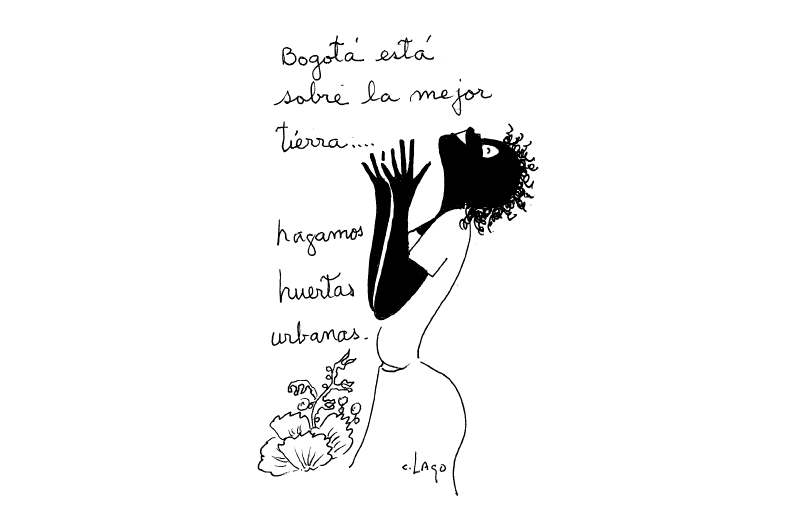 Bogotá está
sobre la mejor
tierra....
hagamos
huertas
urbanas.
c. Lago